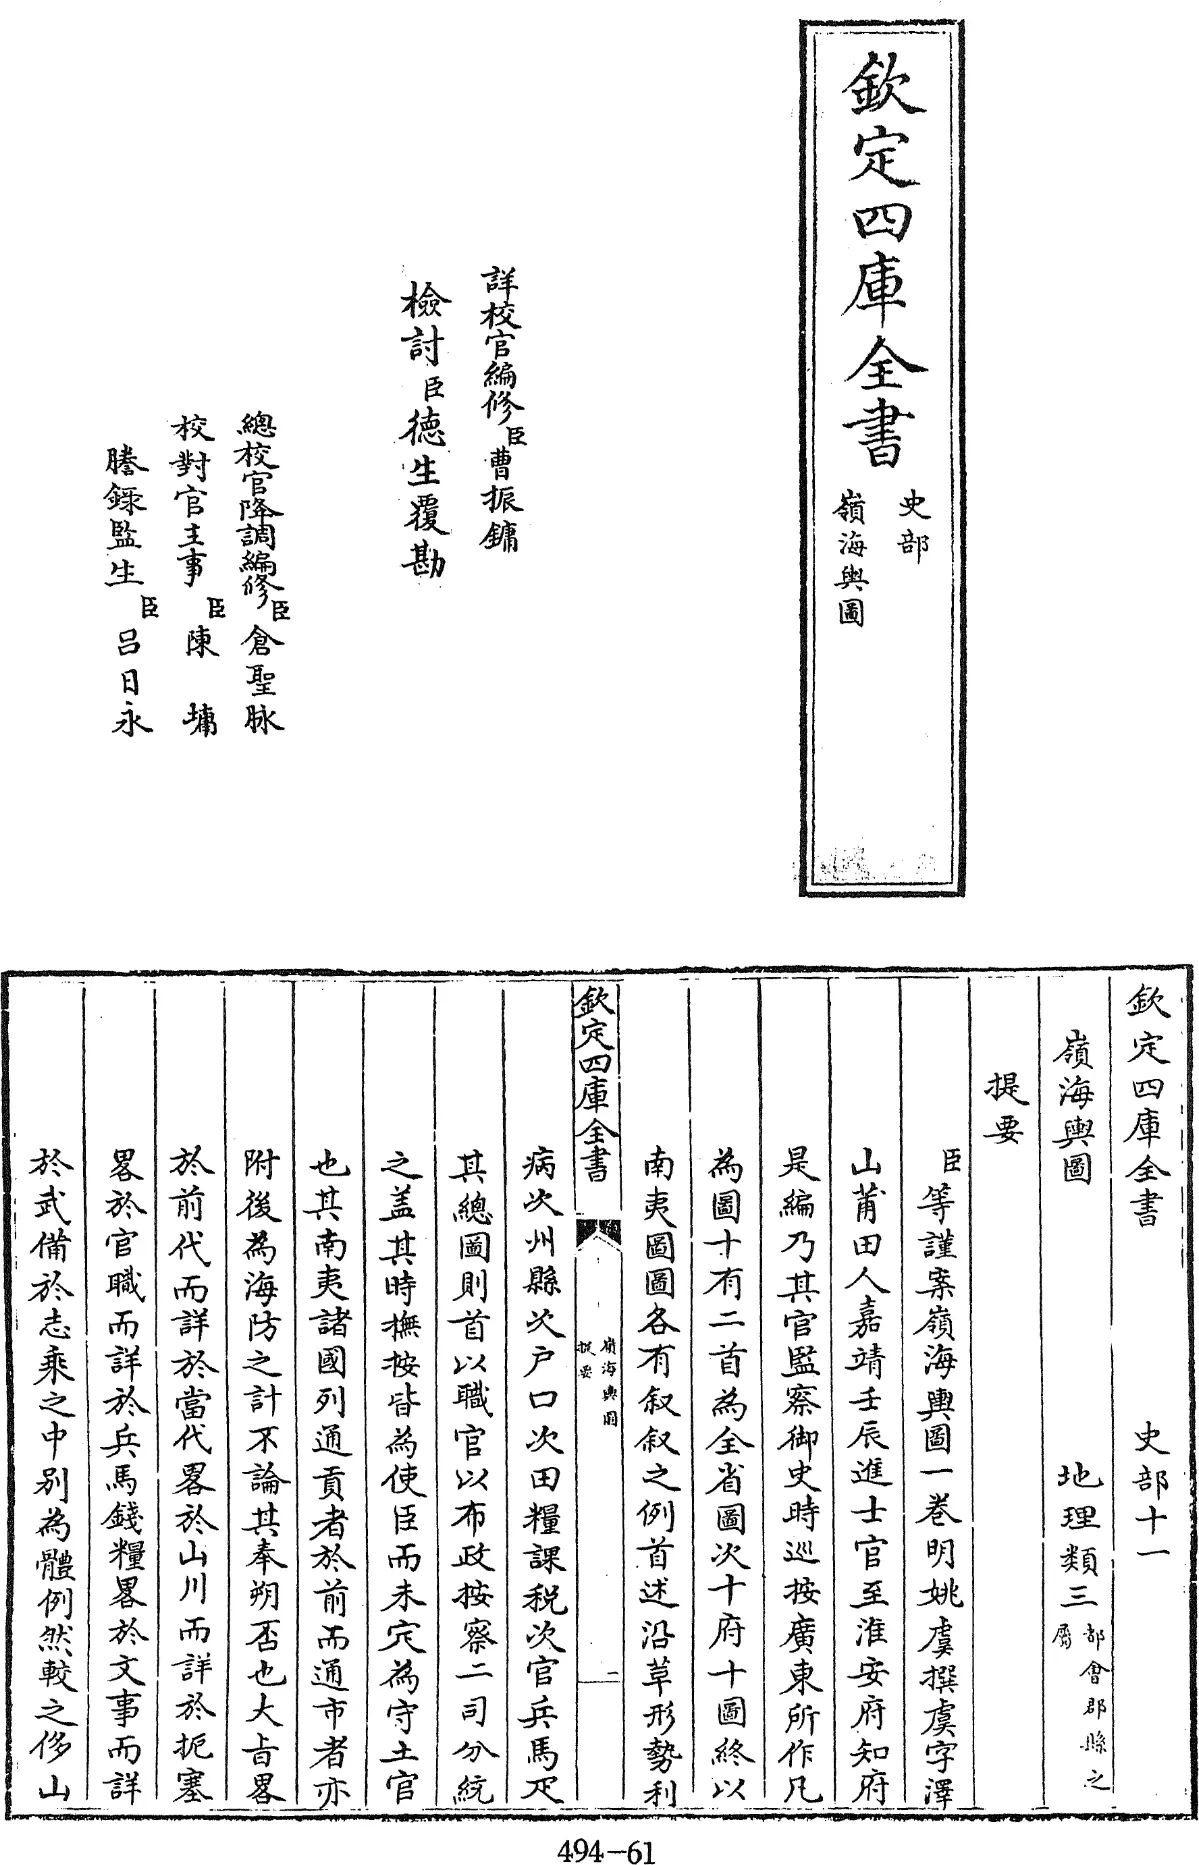 欽定四庫全書
史部
嶺海輿圖
詳校官編修臣曹振鏞
檢討臣德生覆勘
總校官降調編修臣倉聖脉
校對官主事臣陳墉
謄錄監生臣呂日永
欽定四庫全書 史部十一
嶺海輿圖 地理類三都會郡縣之屬
提要
臣等謹案嶺海輿圖一巻明姚虞撰虞字澤
山莆田人嘉靖壬辰進士官至淮安府知府
是編乃其官監察御史時廵按廣東所作凡
為圖十有二首為全省圖次十府十圖終以
南夷圖圖各有叙叙之例首述沿革形勢利
欽定四庫全書
嶺海輿圖
提要
二
病次州縣次户口次田糧課税次官兵馬疋
其總圖則首以職官以布政按察二司分統
之盖其時撫按皆為使臣而未定為守土官
也其南夷諸國列通貢者於前而通市者亦
附後為海防之計不論其奉朔否也大㫖畧
於前代而詳於當代畧於山川而詳於扼塞
畧於官職而詳於兵馬錢糧畧於文事而詳
於武備於志乘之中别為體例然較之侈山
494-61